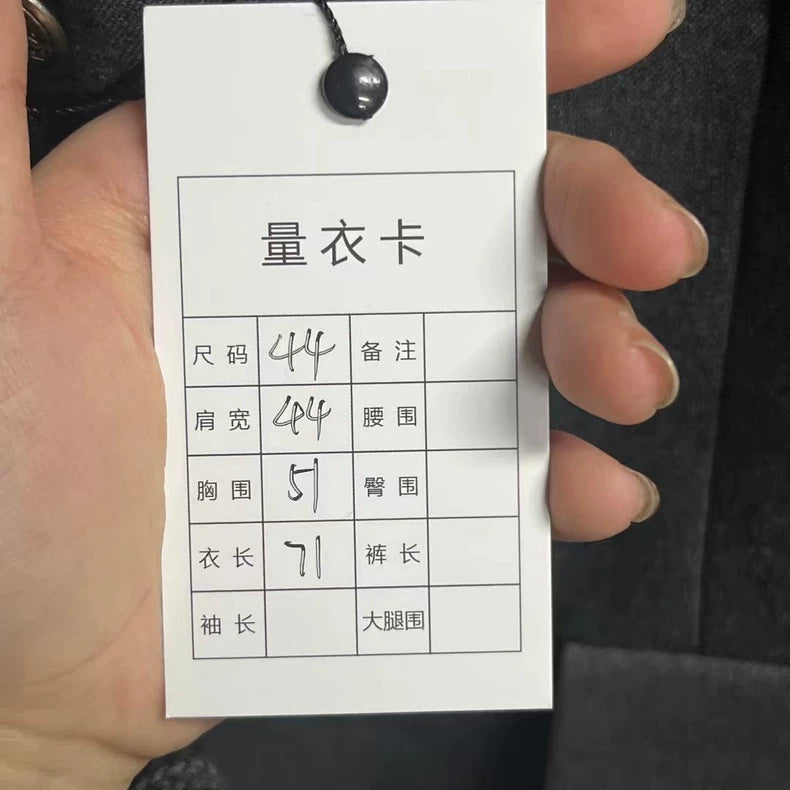 量衣卡
尺码 44 备注
肩宽 44 腰围
胸围 51 臀围
衣长 71 裤长
袖长 大腿围